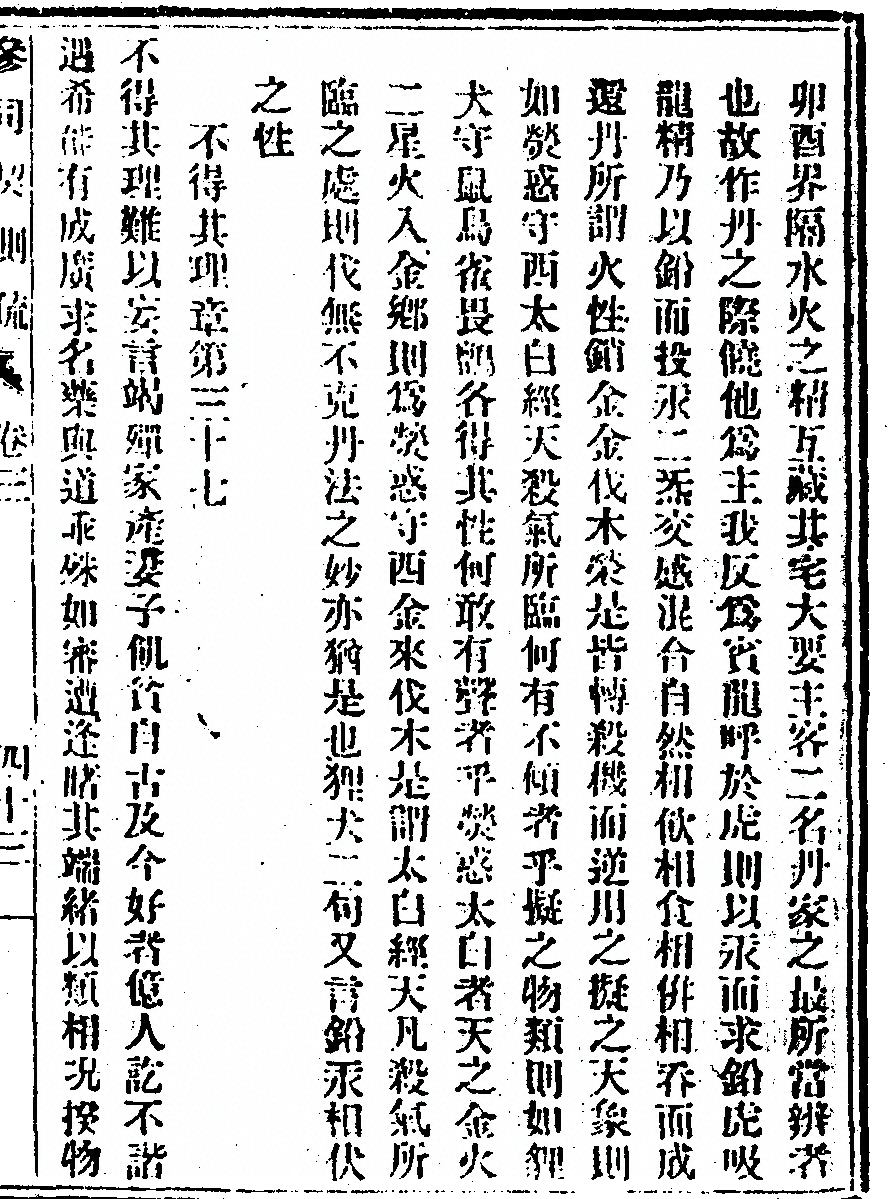 卯酉界隔水火之精互藏其宅大要主客二名丹家之最所當辨者
也故作丹之際饒他爲主我反爲賓龍呼於虎則以汞而求鉛虎吸
龍精乃以鉛而投汞二炁交感混合自然相飲相食相倂相吞而成
還丹所謂火性銷金金伐木榮是皆轉殺機而逆用之擬之天象則
如熒惑守西太白經天殺氣所臨何有不傾者乎擬之物類則如狸
犬守鼠鳥雀畏鸇各得其性何敢有聲者乎熒惑太白者天之金火
二星火入金鄉則爲熒惑守西金來伐木是謂太白經天凡殺氣所
臨之處則伐無不克丹法之妙亦猶是也狸犬二句又言鉛汞相伏
之性
不得其理章第三十七
不得其理難以妄言竭殫家產妻子飢貧自古及今好者億人訖不諧
遇希能有成廣求名藥與道乖殊如審遭逢睹其端緒以類相況揆物
參同契測疏 卷三 四十三